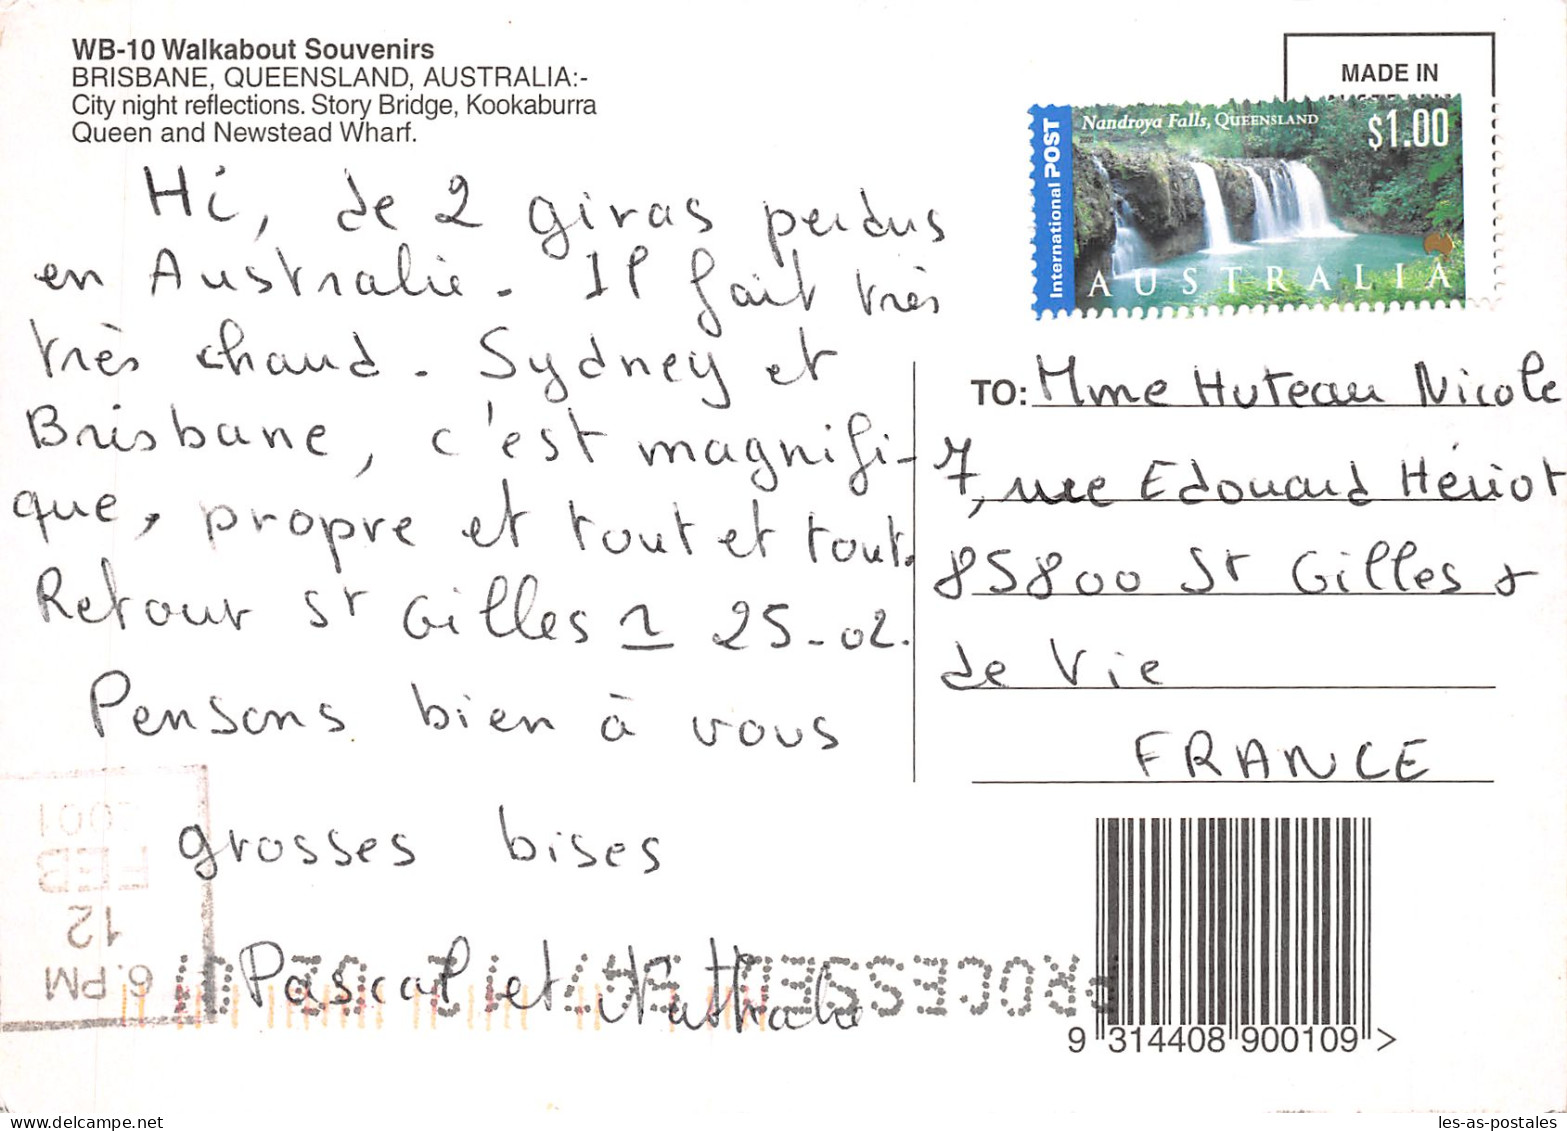 WB-10 Walkabout Souvenirs
BRISBANE, QUEENSLAND, AUSTRALIA:-
City night reflections. Story Bridge, Kookaburra
Queen and Newstead Wharf.
MADE IN
International POST
Nandroya Falls, QUEENSLAND
$1.00
AUSTRALIA
Hi, de 2 giras perdus
en Australie. Il fait très
très chaud. Sydney et
Brisbane, c'est magnifi-
que, propre et tout et tout.
Retour St Gilles 25-02.
Pensons bien à vous
grosses bises
Pascal et Nathalie
TO: Mme Huteau Nicole
7, rue Edouard Hériot
85800 St Gilles x
de Vie
FRANCE
6.PM
12
FEB
2001
PROCESSED
9 314408 900109 >
les-as-postales